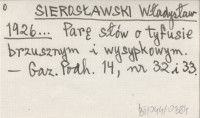 SIEROSŁAWSKI Władysław
1926... Parę słów o tyfusie
brzusznym i wysypkowym.
- Gaz. Podh. 14, nr 32 i 33.